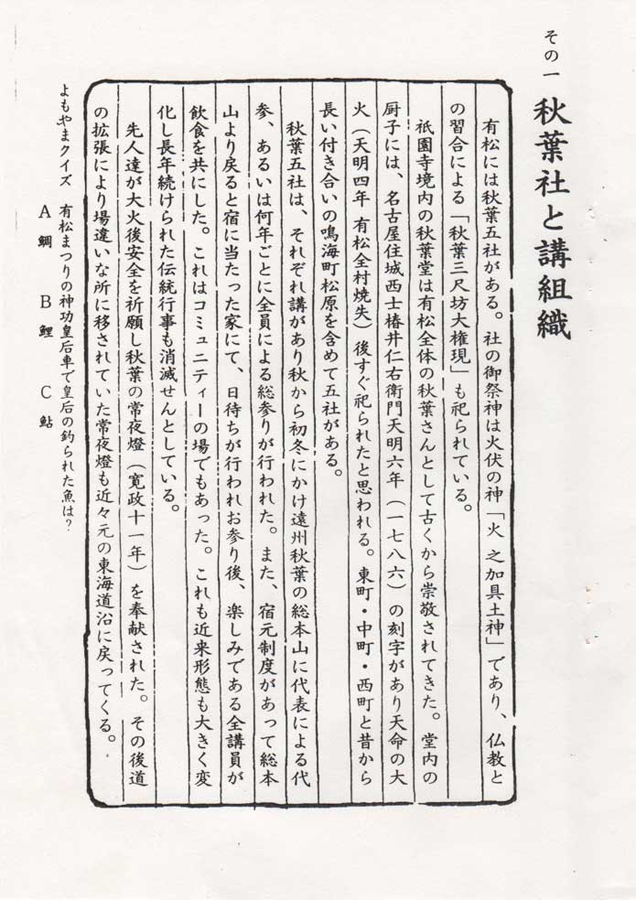 その一 秋葉社と講組織
有松には秋葉五社がある。社の御祭神は火伏の神「火之加具土神」であり、仏教と
の習合による「秋葉三尺坊大権現」も祀られている。
祇園寺境内の秋葉堂は有松全体の秋葉さんとして古くから崇敬されてきた。堂内の
厨子には、名古屋住城西士椿井仁右衛門天明六年（一七八六）の刻字があり天命の大
火（天明四年 有松全村焼失）後すぐ祀られたと思われる。東町・中町・西町と昔から
長い付き合いの鳴海町松原を含めて五社がある。
秋葉五社は、それぞれ講があり秋から初冬にかけ遠州秋葉の総本山に代表による代
参、あるいは何年ごとに全員による総参りが行われた。また、宿元制度があって総本
山より戻ると宿に当たった家にて、日待ちが行われお参り後、楽しみである全講員が
飲食を共にした。これはコミュニティーの場でもあった。これも近来形態も大きく変
化し長年続けられた伝統行事も消滅せんとしている。
先人達が大火後安全を祈願し秋葉の常夜燈（寛政十一年）を奉献された。その後道
の拡張により場違いな所に移されていた常夜燈も近々元の東海道沿に戻ってくる。
よもやまクイズ 有松まつりの神功皇后車で皇后の釣られた魚は？
A 鯛 B 鯉 C 鮎